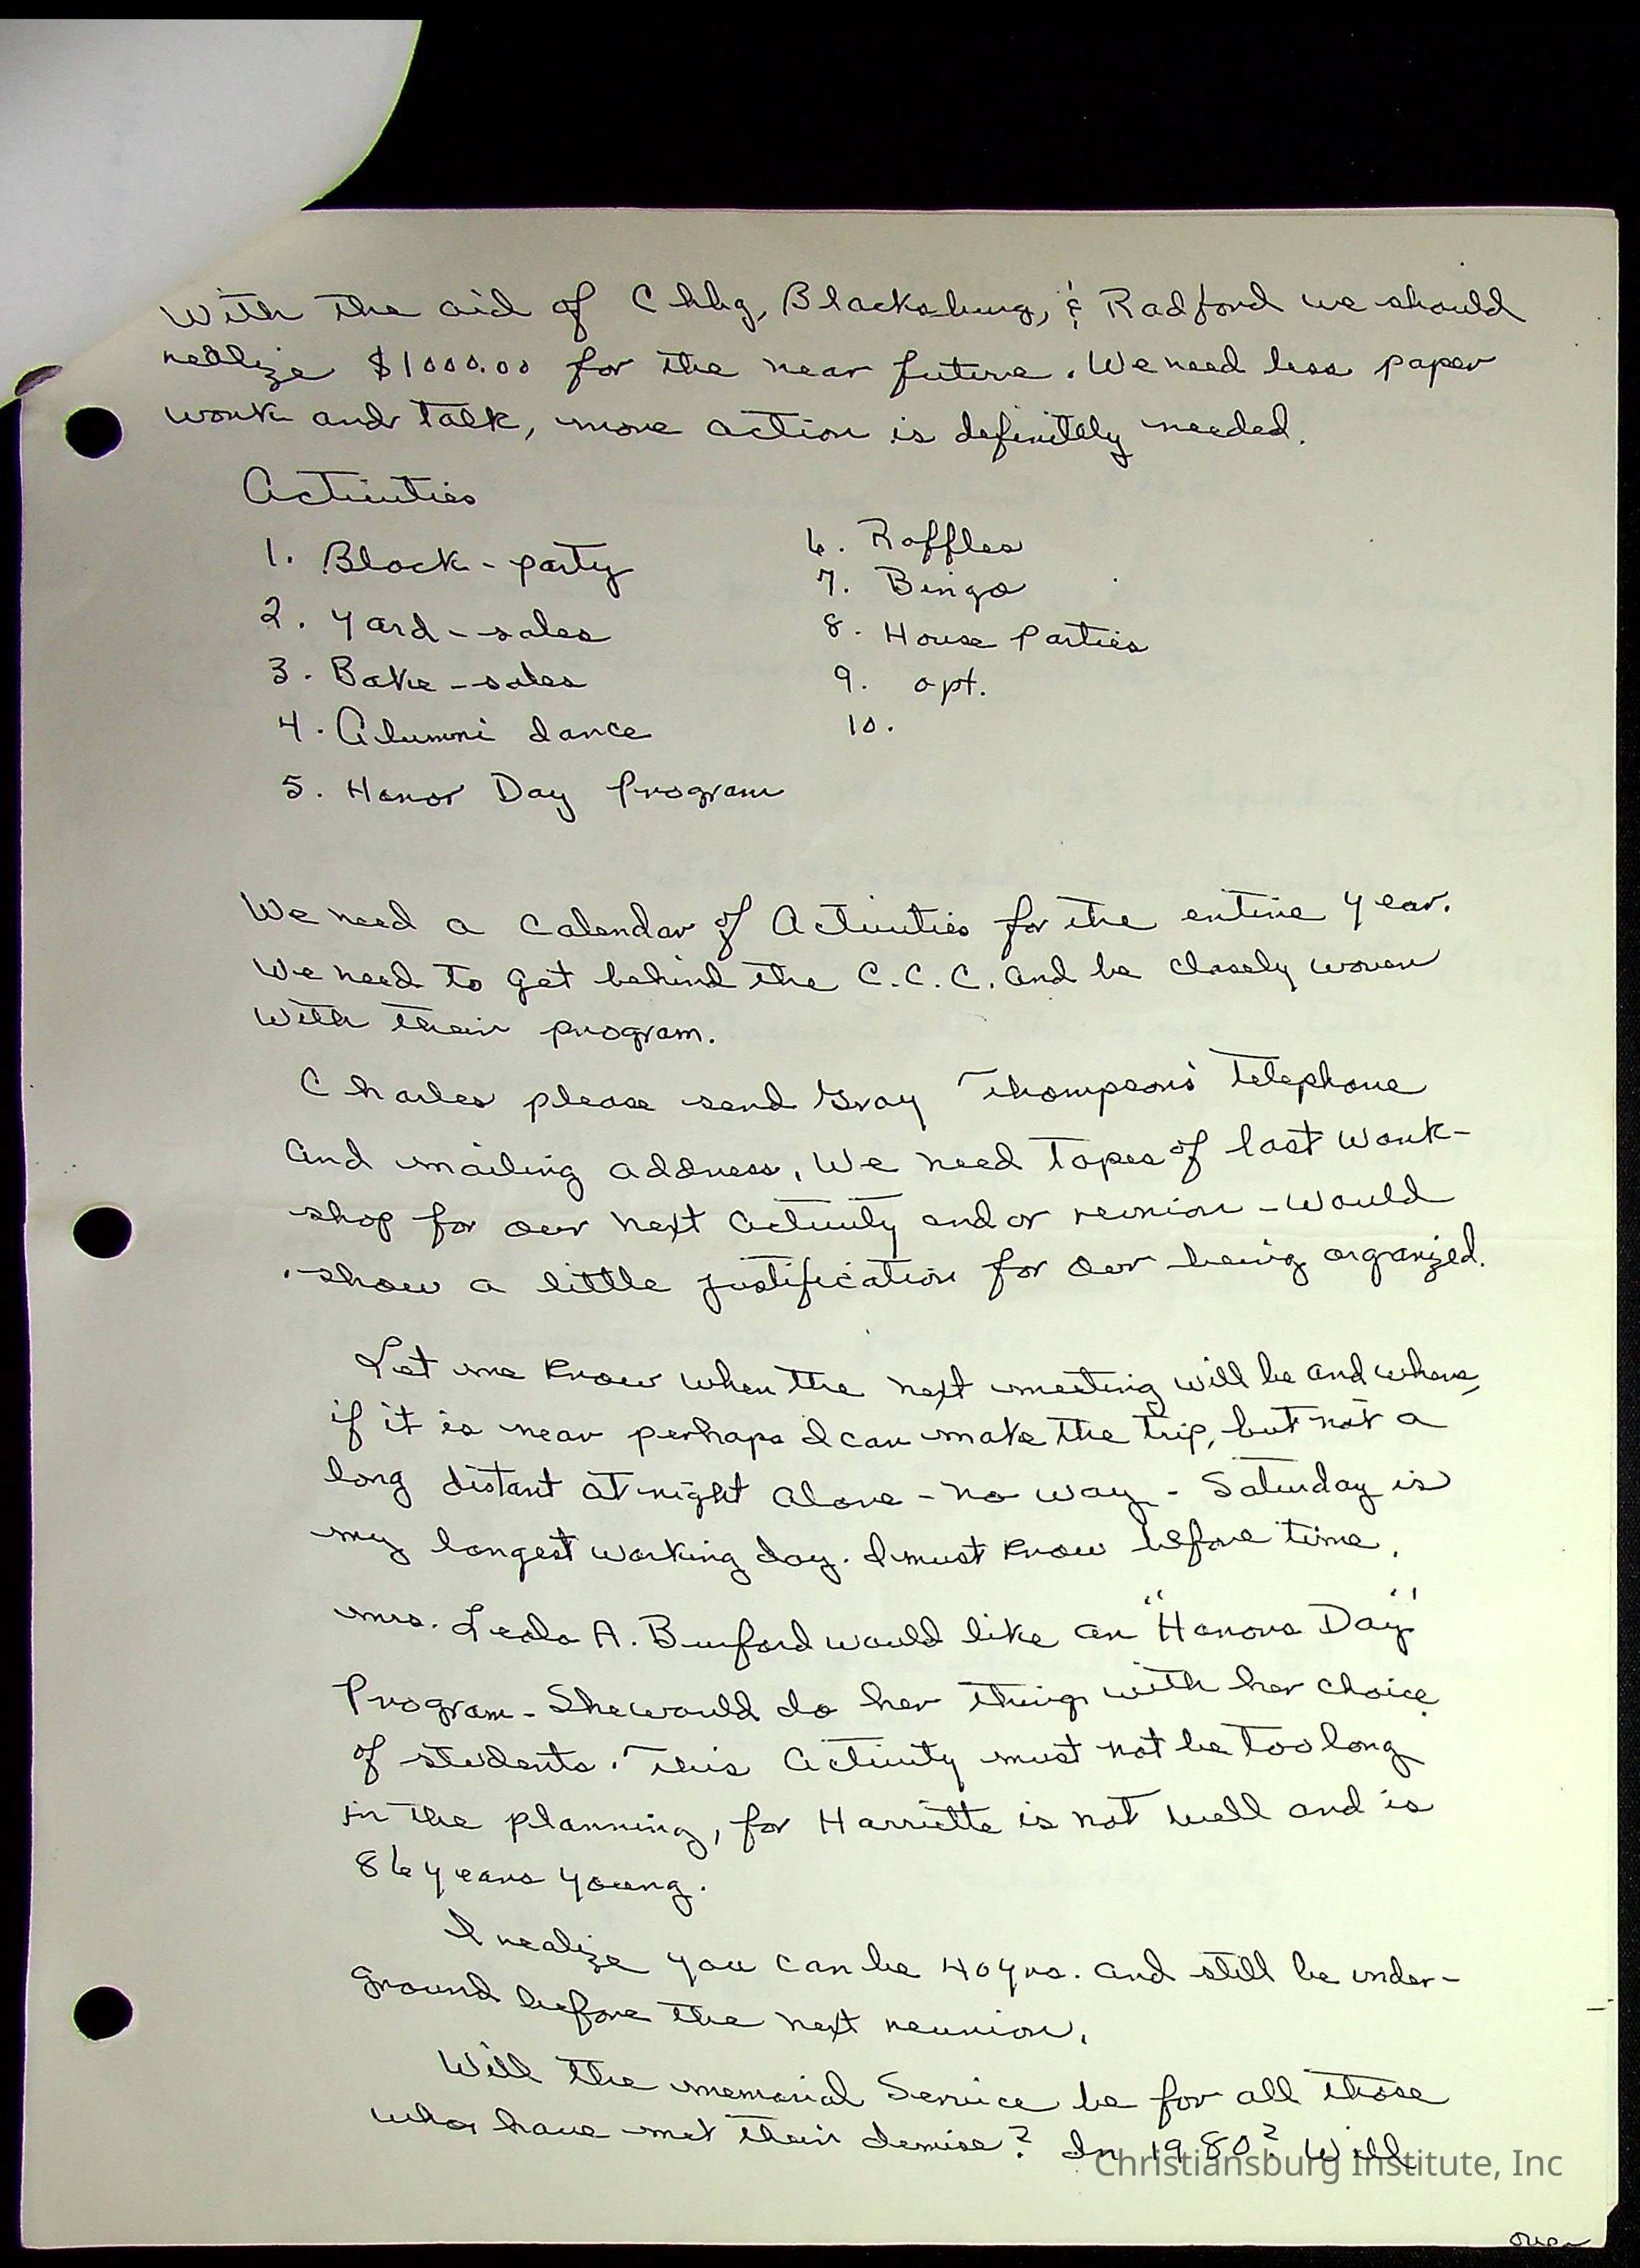 With the aid of Chbg, Blacksburg, & Radford we should
realize $1000.00 for the near future. We need less paper
work and talk, more action is definitely needed.
Activities
1. Block-party
2. Yard-sales
3. Bake-sales
4. Alumni dance
5. Honor Day Program
6. Raffles
7. Bingo
8. House Parties
9. opt.
10.
We need a Calendar of Activities for the entire year.
We need to get behind the C.C.C. and be closely woven
with their program.
Charles please send Gray Thompson's Telephone
and mailing address. We need Tapes of last work-
shop for our next activity and or reunion - would
show a little justification for our being organized.
Let me know when the next meeting will be and where,
if it is near perhaps I can make the trip, but not a
long distant at night alone - no way - Saturday is
my longest working day. I must know before time.
Mrs. Leola A. Burford would like an "Honors Day"
Program - She would do her thing with her choice
of students. This activity must not be too long
in the planning, for Harriette is not well and is
86 years young.
I realize you can be 40 yrs. and still be under-
ground before the next reunion.
Will the memorial Service be for all those
who have met their demise? In 1980? Will
Christiansburg Institute, Inc
over